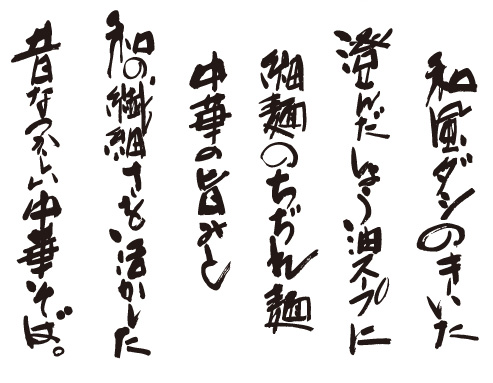 和風ダシのきいた
澄んだしょう油スープに
細麺のちぢれ麺
中華の旨みと
和の繊細さを活かした
昔なつかしい中華そば。